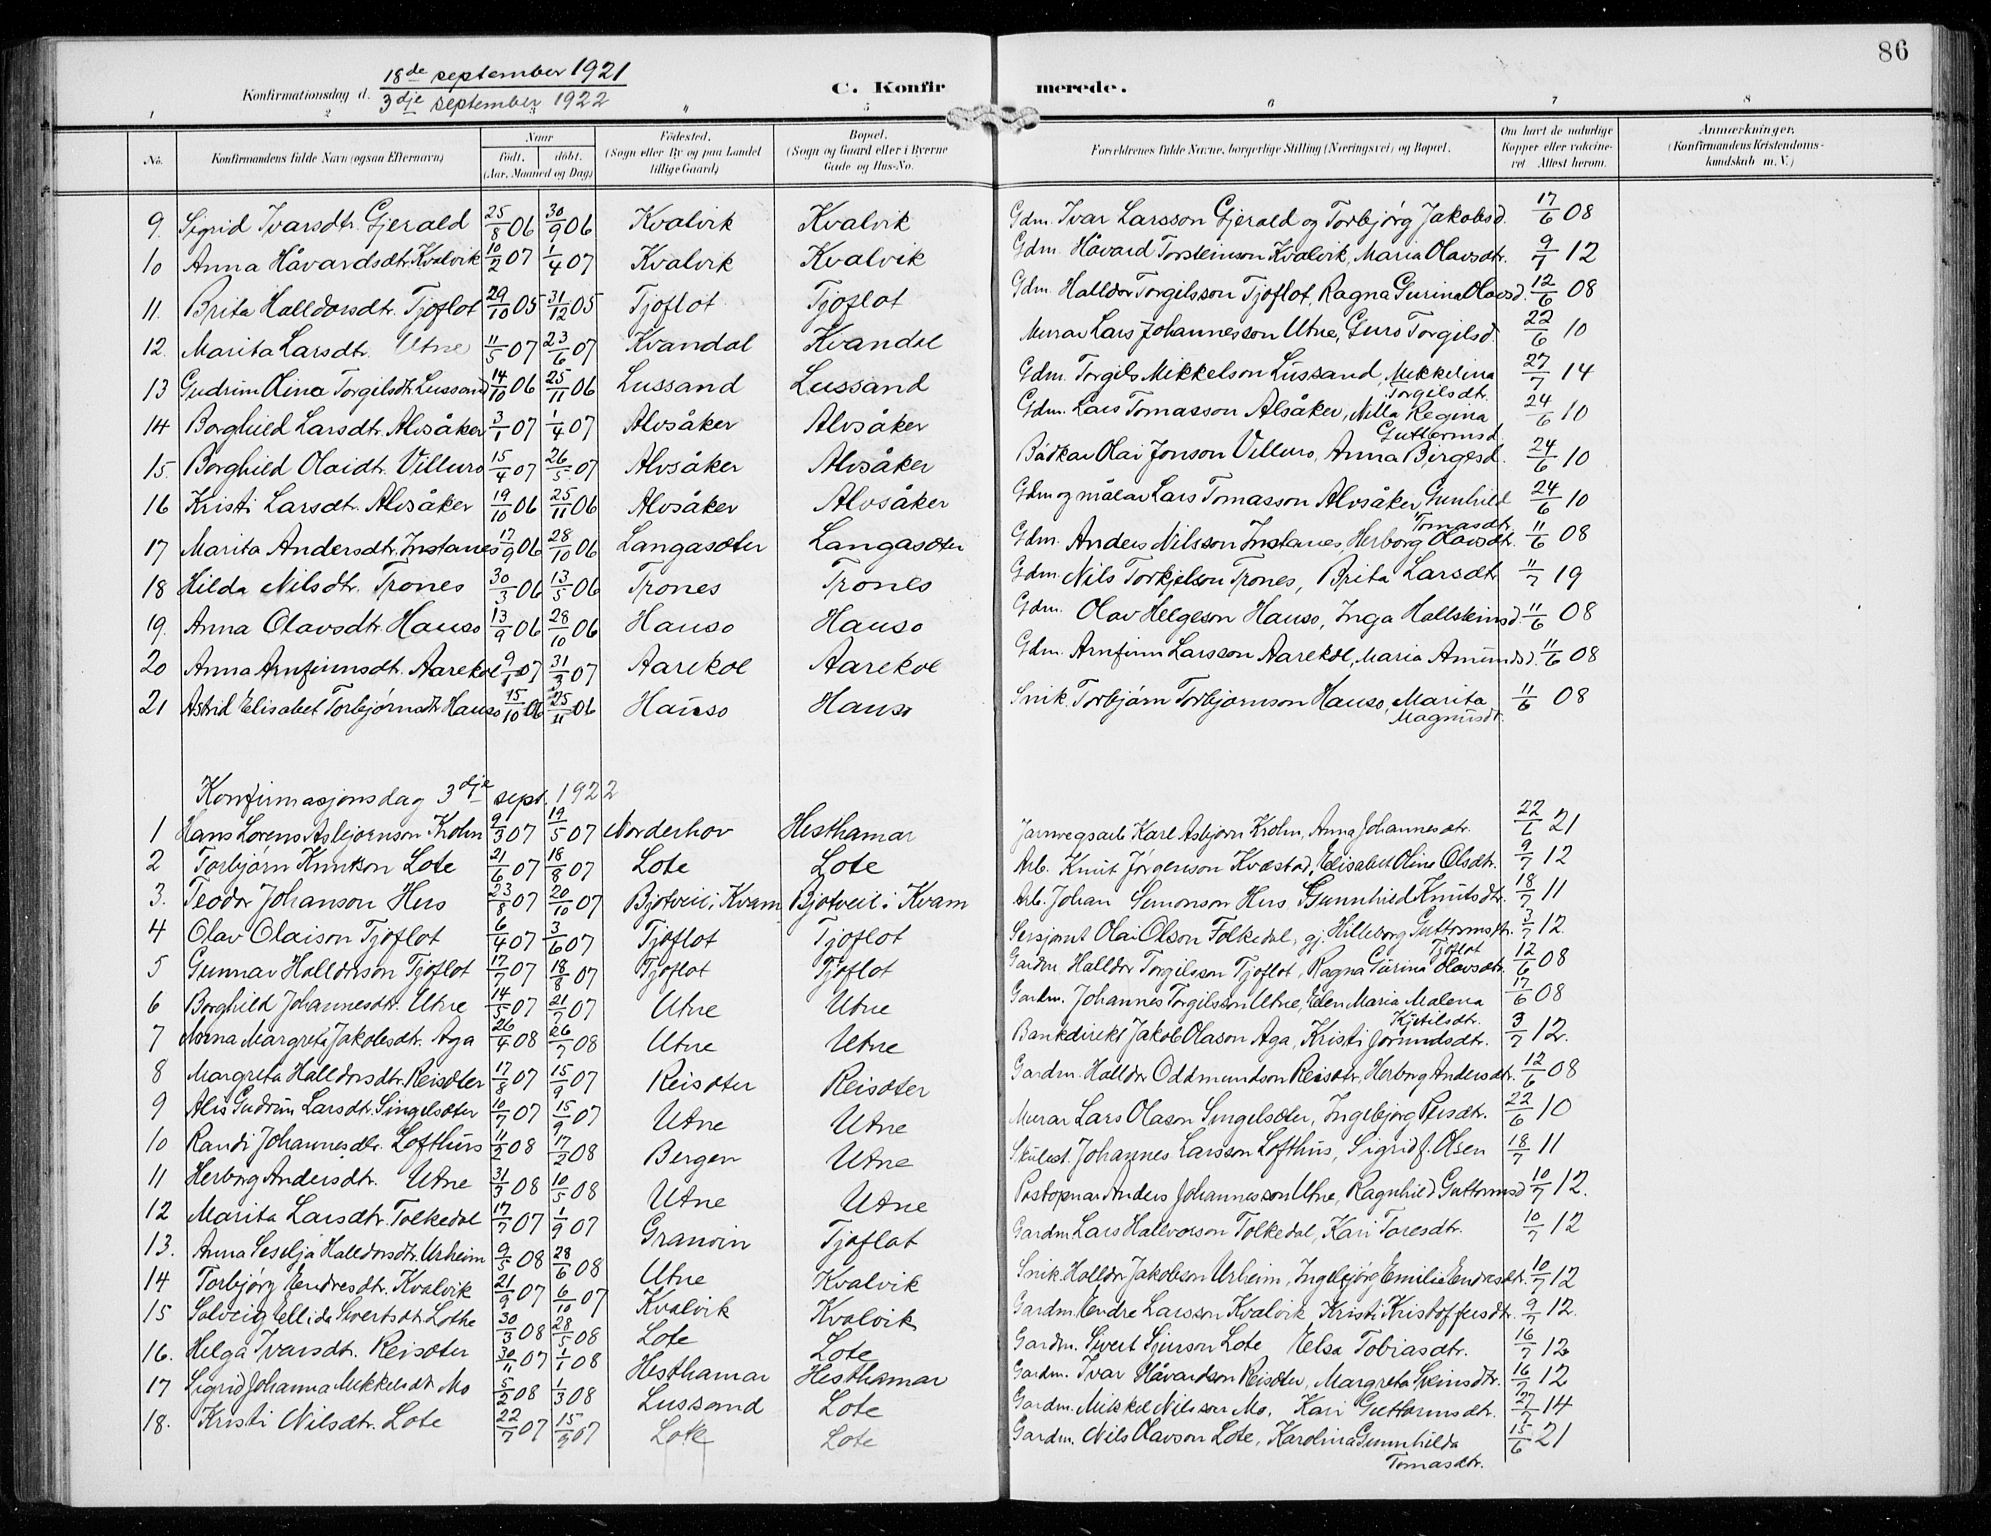 86
18de september 1921
Konfirmationsdag d. 3dje september 1922
C. Konfirmerede.
1 2 3 4 5 6 7 8
No. Konfirmandens fulde Navn (ogsaa Efternavn) Naar født. døbt. (Aar, Maaned og Dag) Fødested. (Sogn eller By og paa Landet tillige Gaard) Bopæl. (Sogn og Gaard eller i Byerne Gade og Hus-No. Forældrenes fulde Navne, borgerlige Stilling (Næringsvei) og Bopæl. Om havt de naturlige Kopper eller vaccineret Attest herom. Anmærkninger. (Konfirmandens Kristendomskundskab m. V.)
9. Sigrid Ivarsdtr. Gjerald 25/8 06 30/9 06 Kvalvik Kvalvik Gdm. Ivar Larsson Gjerald og Torbjørg Jakobsd. 17/6 08
10 Anna Håvardsdtr. Kvalvik 10/2 07 1/4 07 Kvalvik Kvalvik Gdm. Håvard Torsteinson Kvalvik, Maria Olavsdtr. 9/1 12
11. Brita Halldorsdtr. Tjoflot 29/10 05 31/12 05 Tjoflot Tjoflot Gdm. Halldor Torgilsson Tjoflot, Ragna Gurina Olavsd. 12/6 08
12. Marita Larsdtr. Utne 11/5 07 23/6 07 Kvandal Kvandal Murar Lars Johannesson Utne, Guro Torgilsd. 22/6 10
13 Gudrun Olina Torgilsdtr. Lussand 14/10 06 25/11 06 Lussand Lussand Gdm. Torgils Mikkelson Lussand, Mikkelina Torgilsdtr. 27/7 14
14 Borghild Larsdtr. Alvsåker 3/1 07 1/4 07 Alvsåker Alvsåker Gdm. Lars Tomasson Alsåker, Nilla Regina Guttormsd. 24/6 10
15. Borghild Olaidtr. Villuro 15/4 07 26/5 07 Alvsåker Alvsåker Bådkar Olai Jonson Villuro, Anna Birgesd. 24/6 10
16 Kristi Larsdtr. Alvsåker 19/10 06 25/11 06 Alvsåker Alvsåker Gdm og målar Lars Tomasson Alvsåker, Gunhild Tomasdtr. 24/6 10
17 Marita Andersdtr. Instanes 17/9 06 28/10 06 Langasæter Langasæter Gdm. Anders Nilsson Instanes, Herborg Olavsdtr. 11/6 08
18 Hilda Nilsdtr. Trones 30/3 06 13/5 06 Trones Trones Gdm. Nils Torkjelson Trones, Brita Larsdtr. 11/7 19
19. Anna Olavsdtr. Hauso 13/9 06 28/10 06 Hauso Hauso Gdm. Olav Helgeson Hauso, Inga Hallsteinsd. 11/6 08
20 Anna Arnfinnsdt. Aarekol 9/1 07 31/3 07 Aarekol Aarekol Gdm. Arnfinn Larsson Aarekol, Maria Amundsd. 11/6 08
21 Astrid Elisabet Torbjørnsdtr Hauso 15/10 06 25/11 06 Hauso Hauso Snik. Torbjørn Torbjørnson Hauso, Marita Magnusdt. 11/6 08
Konfirmasjonsdag 3dje sept. 1922
1 Hans Lorens Asbjørnson Krohn 9/3 07 19/5 07 Norderhov Hesthamar Jarnvegsarb Karl Asbjørn Krohn, Anna Johannesdtr. 22/6 21
2 Torbjørn Knutson Lote 21/6 07 18/8 07 Lote Lote Arb. Knut Jørgenson Kvæstad, Elisabet Oline Olsdtr. 9/7 12
3. Teodor Johanson Hus 23/8 07 20/10 07 Bjotveit i Kvam Bjotveit i Kvam Arb. Johan Simonson Hus Gunnhild Knutsdtr. 18/7 11
4 Olav Olaison Tjoflot 6/4 07 3/6 07 Tjoflot Tjoflot Sersjant Olai Olson Folkedal, gj. Hilleborg Guttormsdtr. Tjoflot 3/7 12.
5 Gunnar Halldorson Tjoflot 17/7 07 18/8 07 Tjoflot Tjoflot Gardm. Halldor Torgilsson Tjoflot, Ragna Gurina Olavsdtr. 12/6 08
6 Borghild Johannesdtr. Utne 14/5 07 21/7 07 Utne Utne Gardm. Johannes Torgilsson Utne, Elen Maria Malena Kjetilsdtr. 17/6 08
7 Anna Margreta Jakobsdtr. Aga 26/4 08 26/7 08 Utne Utne Bankdirekt Jakob Olason Aga, Kristi Jorundsdtr. 3/7 12.
8 Margreta Halldorsdtr. Reisæter 17/8 07 15/9 07 Reisæter Reisæter Gardm. Halldor Oddmundson Reisæter, Herborg Andersdtr. 12/6 08
9 Alis Gudrun Larsdtr. Singelsæter 10/7 07 15/9 07 Utne Utne Murar Lars Olason Singelsæter, Ingebjørg Persdtr. 22/6 10
10 Randi Johannesdtr. Lofthus 11/2 08 17/2 08 Bergen Utne Skulest. Johannes Larsson Lofthus, Sigrid J. Olsen 18/7 11
11 Herborg Andersdtr. Utne 31/3 08 10/5 08 Utne Utne Postopnar Anders Johannesson Utne, Ragnhild Guttormsd 10/7 12.
12 Marita Larsdtr. Folkedal 17/7 07 1/9 07 Granvin Tjoflot Gardm Lars Hallvorsson Folkedal, Kari Toresdtr. 10/7 12
13. Anna Seselja Halldorsdtr. Urheim 9/5 08 28/6 08 Utne Kvalvik Snik. Halldor Jakobson Urheim, Ingebjørg Emilie Endresdtr. 10/7 12
14 Torbjørg Endresdtr. Kvalvik 21/9 07 6/10 07 Kvalvik Kvalvik Gardm. Endre Larsson Kvalvik Kristi Kristoffersdtr. 9/7 12.
15 Solveig Ellida Sivertsdtr. Lothe 30/3 08 28/5 08 Lote Lote Gardm. Sivert Sjurson Lote Elsa Tobiasdtr. 16/7 12
16. Helga Ivarsdtr. Reisæter 30/11 07 1/1 08 Hesthamar Hesthamar Gardm. Ivar Håvardson Reisæter, Margreta Sveinsdtr. 16/7 12
17 Sigrid Johanna Mikkelsdtr. Mo 5/2 08 1/3 08 Lussand Lote Gardm. Mikkel Nilsson Mo. Kari Guttormsdtr. 27/7 14
18. Kristi Nilsdtr. Lote 22/7 07 15/9 07 Lote Lote Gardm. Nils Olavson Lote, Karolina Gunnhilda Tomasdtr. 15/6 21